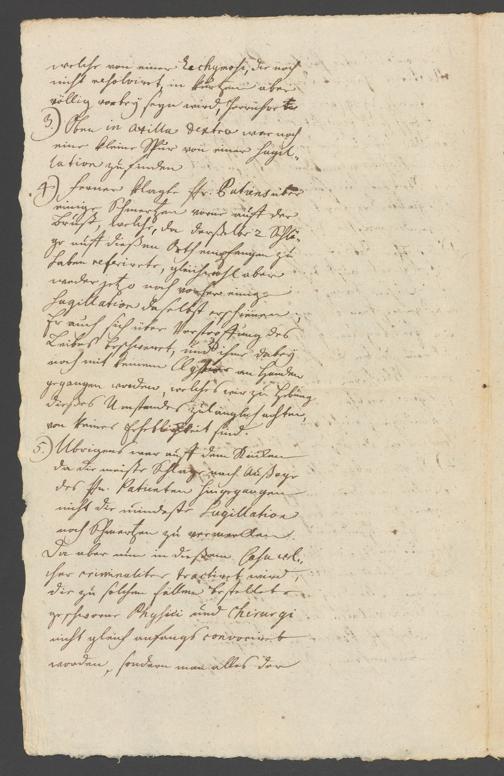 welche von einer Echymosi, die noch
nicht resolviret, in kurtzen aber
völlig vorbey seyn wird, herrührete
3.) Oben in axilla dextra war noch
eine kleine Spur von einer Sugil-
lation zu finden
4.) Ferner klagte Hr. Patiens über
einige Schmertzen vorne auff der
Brust, welche, da derselbe 2 Schlä-
ge auff diesen Orth empfangen zu
haben referirete, gleichwohl aber
weder jetzo noch vorher einige
Sugillation daselbst erschienen,
Er auch sich über Verstopffung des
Leibes beschweret, und ihm dabey
noch mit keinem Clystier an Handen
gegangen worden, welches wir zu Hebung
dieses Umstandes zulänglich achten,
von keiner Erheblichkeit sind.
5.) Ubrigens war auff dem Rücken
da die meiste Schläge nach Aussage
des Hn. Patienten hingegangen
nicht die mindeste Sugillation
noch Schmertzen zu vermercken.
Da aber nun in diesem Casu wel-
cher criminaliter tractiret wird,
die zu solchen Fällen bestellete
geschworne Physici und Chirurgi
nicht gleich anfangs convociret
worden, sondern man alles der